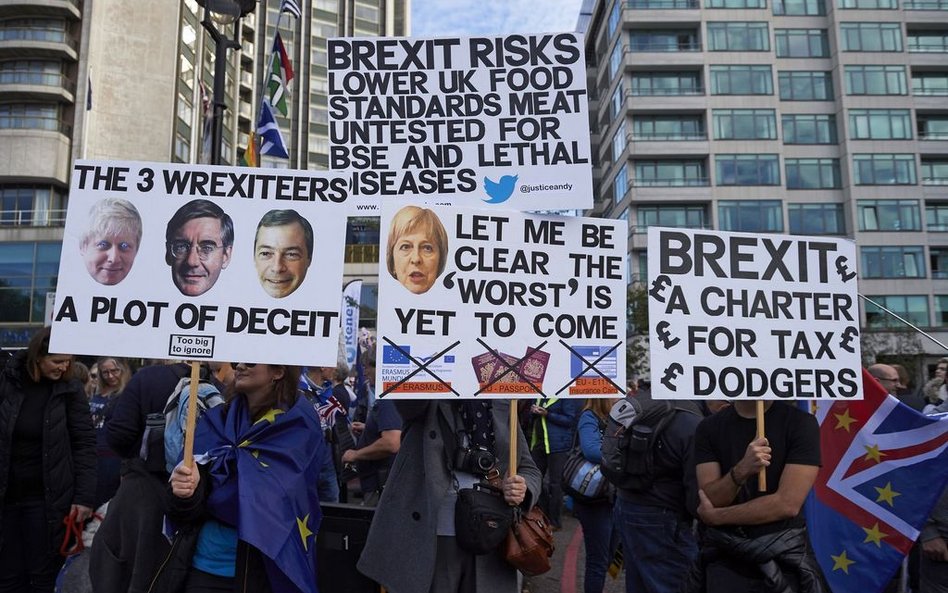 BREXIT RISKS
LOWER UK FOOD
STANDARDS MEAT
UNTESTED FOR
BSE AND LETHAL
DISEASES
@justiceandy
THE 3 WREXITEERS
A PLOT OF DECEIT
Too big
to ignore
LET ME BE
CLEAR THE
'WORST' IS
YET TO COME
ERASMUS
MUNDUS
EU - ERASMUS
EU - PASSPORT
EU - E111
BREXIT
£A CHARTER £
£ FOR TAX £
£ DODGERS